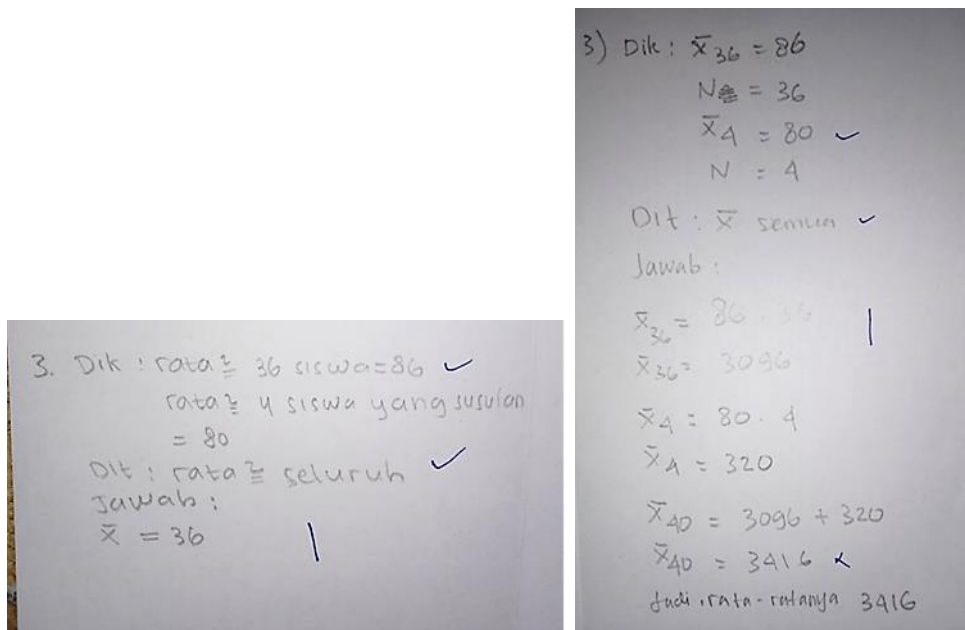 3. Dik : rata² 36 siswa = 86 ✓
rata² 4 siswa yang susulan
= 80
Dit : rata² seluruh ✓
Jawab :
x̄ = 36
3) Dik : x̄ 36 = 86
N = 36
x̄ 4 = 80 ✓
N = 4
Dit : x̄ semua ✓
Jawab :
x̄ 36 = 86 . 36
x̄ 36 = 3096
x̄ 4 = 80 . 4
x̄ 4 = 320
x̄ 40 = 3096 + 320
x̄ 40 = 3416
Jadi, rata-ratanya 3416